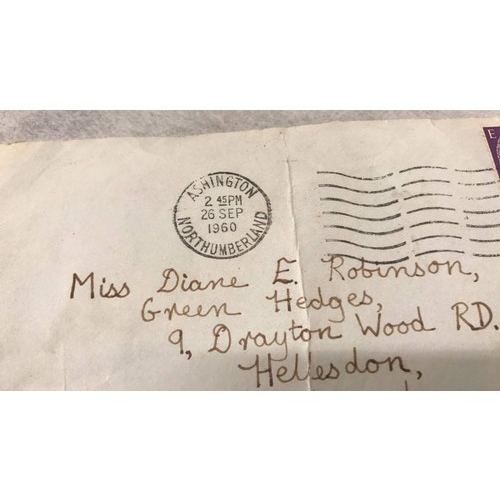 ASHINGTON
2 45PM
26 SEP
1960
NORTHUMBERLAND
E
Miss Diane E. Robinson,
Green Hedges,
9, Drayton Wood RD.
Hellesdon,